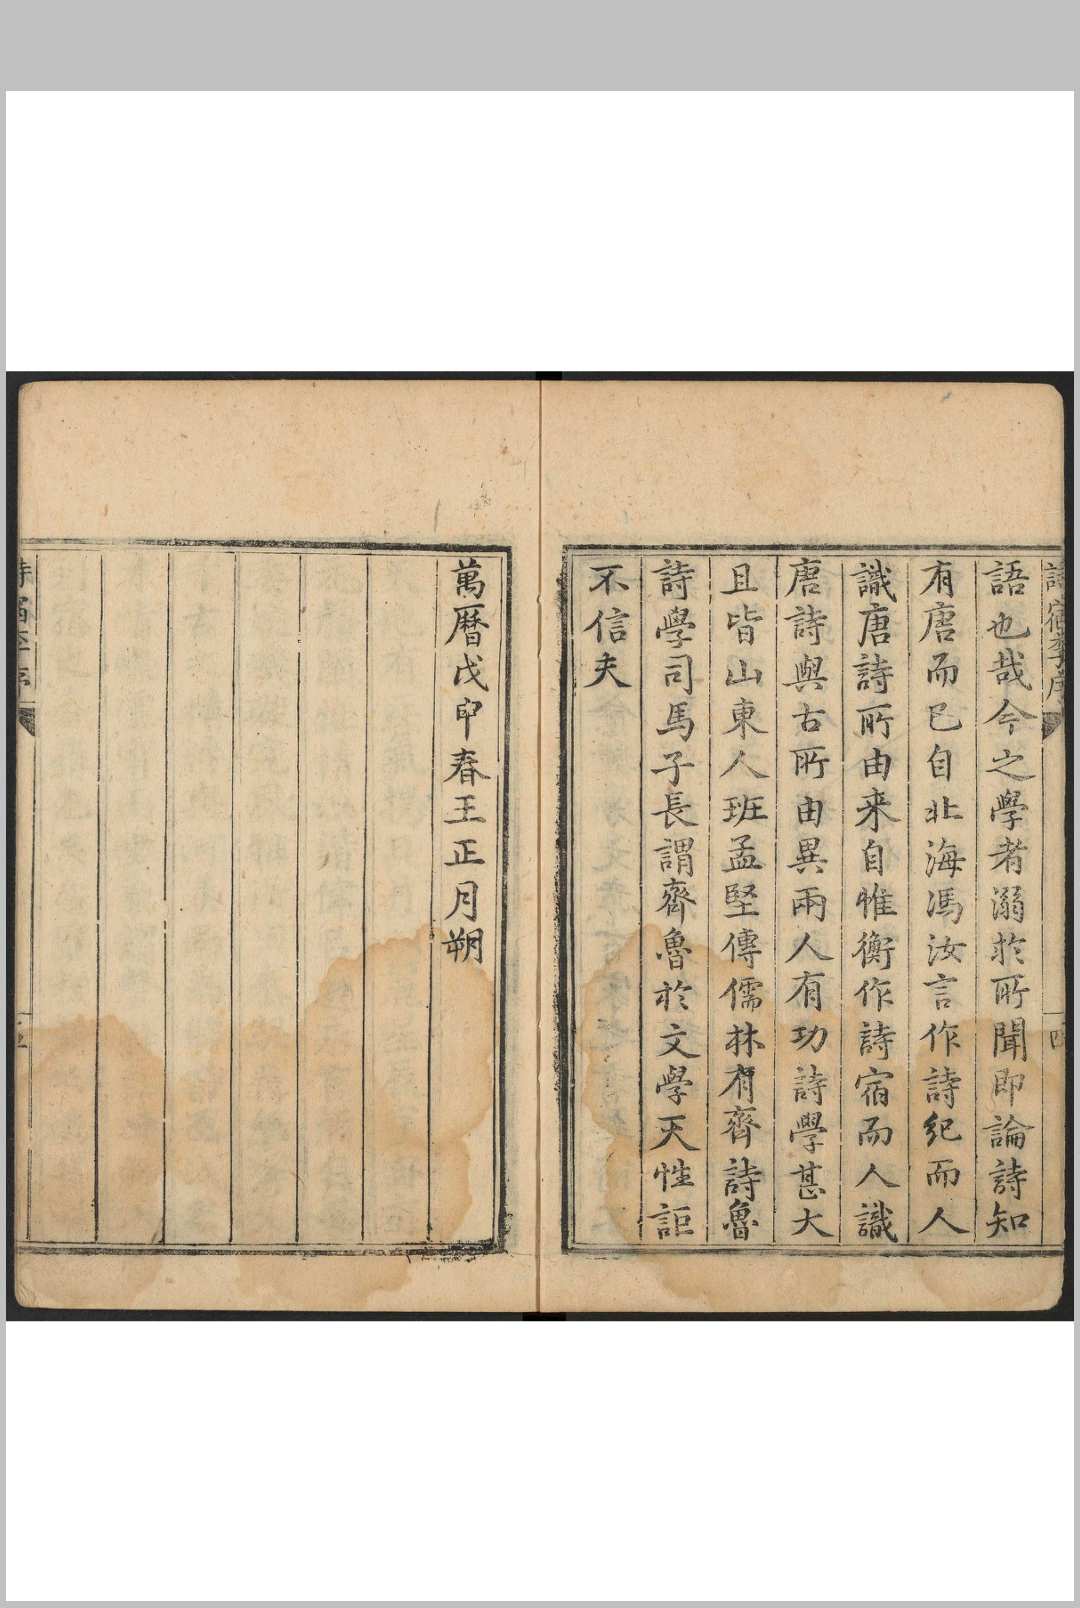 詩宿李序
四
語也哉今之學者溺於所聞即論詩知
有唐而已自北海馮汝言作詩紀而人
識唐詩所由来自惟衡作詩宿而人識
唐詩與古所由異兩人有功詩學甚大
且皆山東人班孟堅傳儒林有齊詩魯
詩學司馬子長謂齊魯於文學天性詎
不信夫
萬曆戊卯春王正月朔
詩宿李序
五